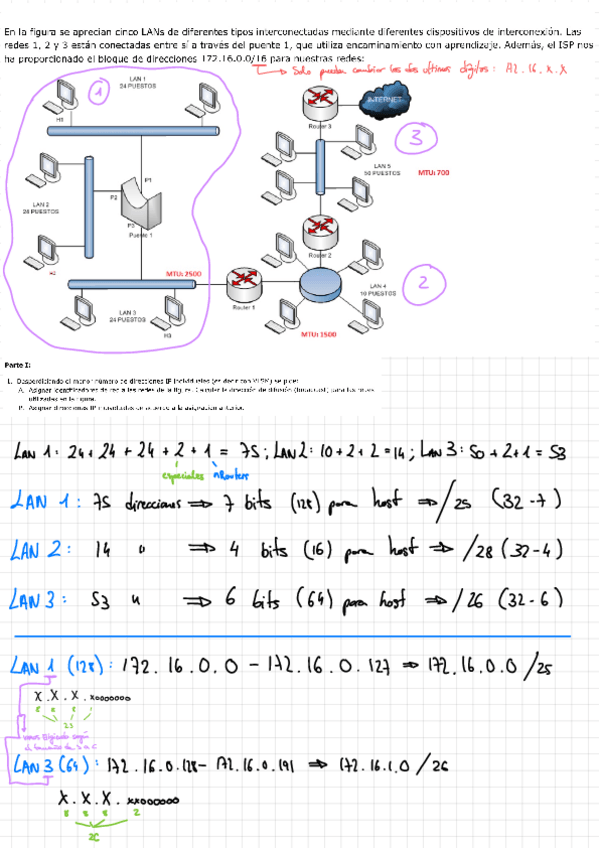 En la figura se aprecian cinco LANs de diferentes tipos interconectadas mediante diferentes dispositivos de interconexión. Las
redes 1, 2 y 3 están conectadas entre sí a través del puente 1, que utiliza encaminamiento con aprendizaje. Además, el ISP nos
ha proporcionado el bloque de direcciones 172.16.0.0/16 para nuestras redes:
Solo pueden cambiar los dos últimos dígitos: 172.16.x.x
1
LAN 1
24 PUESTOS
H1
INTERNET
Router 3
3
P1
P2
P3
Puente 1
LAN 2
LAN 5
50 PUESTOS
MTU: 700
Router 2
MTU: 2500
Router 1
LAN 3
24 PUESTOS
H3
LAN 4
10 PUESTOS
2
MTU: 1500
Parte I:
LAN 1: 24 + 24 + 24 + 2 + 1 = 75; LAN 2: 10 + 2 + 2 = 14; LAN 3: 50 + 2 + 1 = 53
especiales nRouters
LAN 1: 75 direcciones ⇒ 7 bits (128) para host ⇒ /25 (32-7)
LAN 2: 14 u ⇒ 4 bits (16) para host ⇒ /28 (32-4)
LAN 3: 53 u ⇒ 6 bits (64) para host ⇒ /26 (32-6)
LAN 1 (128): 172.16.0.0 - 172.16.0.127 ⇒ 172.16.0.0/25
X.X.X.x0000000
8 8 8 1
25
LAN 3 (64): 172.16.0.128 - 172.16.0.191 ⇒ 172.16.1.0/26
X.X.X.xx000000
8 8 8 2
26